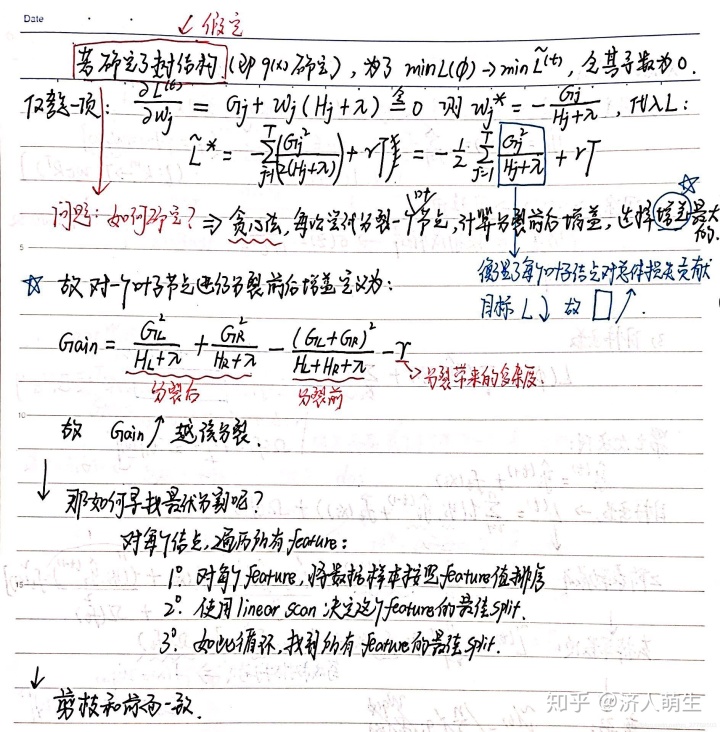 Date
↙ 假定
若确定了树结构 (即 q(x) 确定), 为了 min L(φ) → min L̃^(t), 令其导数为 0.
仅考虑一项: ∂L̃^(t)/∂w_j = G_j + w_j (H_j + λ) ≜ 0 则 w_j* = - G_j/(H_j+λ), 代入 L:
L̃* = -∑_{j=1}^T (G_j²/(2(H_j+λ))) + rT = -1/2 ∑_{j=1}^T G_j²/(H_j+λ) + rT
问题: 如何确定? ⇒ 贪心法, 每次尝试分裂一个叶节点, 计算分裂前后增益, 选择增益最大的.
衡量了每个叶子结点对总体损失贡献
目标 L↓ 故 □↑.
☆ 故对一个叶子节点进行分裂前后增益定义为:
Gain = G_L²/(H_L+λ) + G_R²/(H_R+λ) - (G_L+G_R)²/(H_L+H_R+λ) - r
分裂后 分裂前 → 分裂带来的复杂度.
故 Gain↑ 越该分裂.
↓ 那如何寻找最优分割呢?
对每个结点, 遍历所有 feature:
1° 对每个 feature, 将数据样本按照 feature 值排序
2° 使用 linear scan 决定这个 feature 的最佳 split.
3° 如此循环, 找到所有 feature 的最佳 split.
↓
剪枝和前面一致.
知乎 @济人萌生
5
10
15